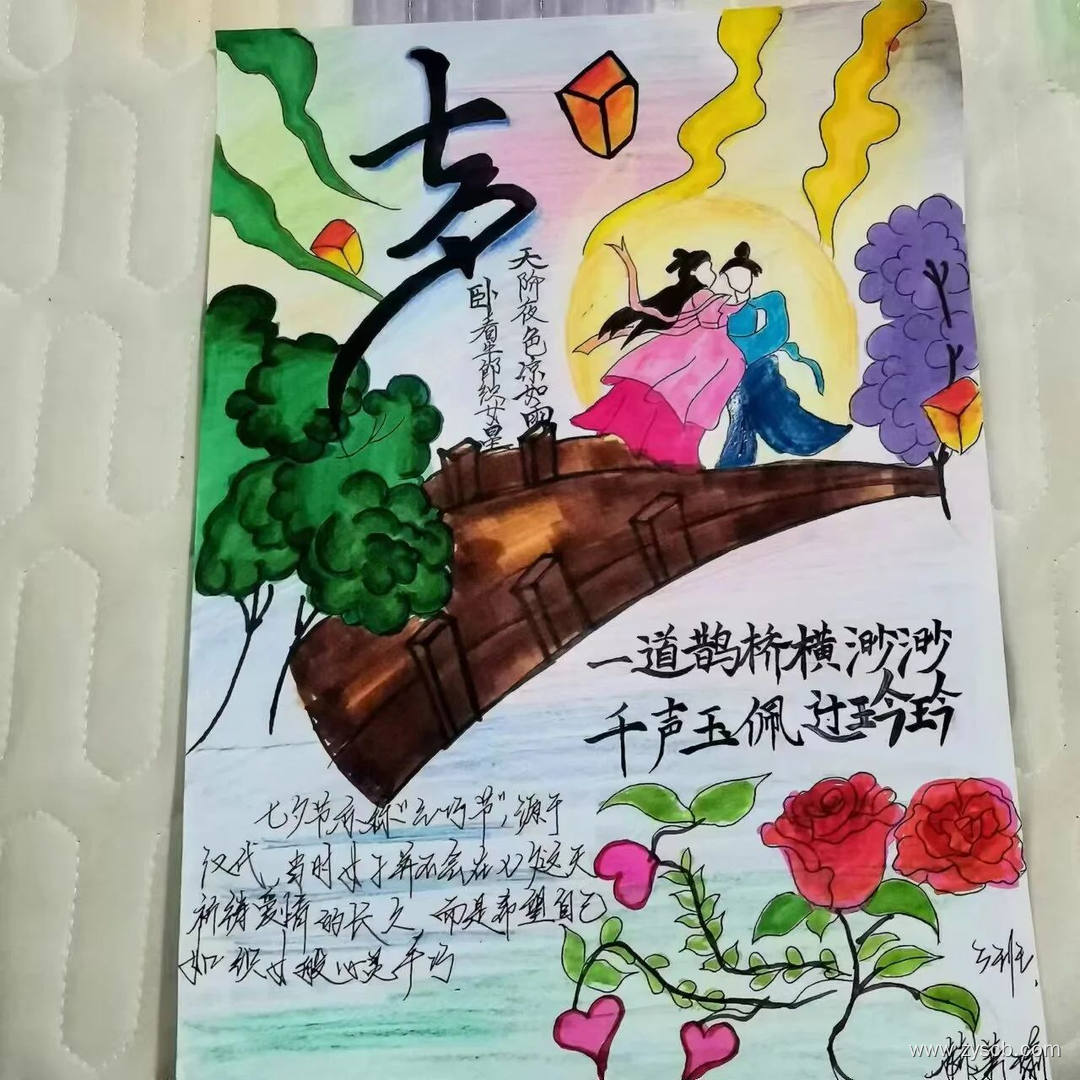 七夕
天阶夜色凉如
卧看牛郎织女星
一道鹊桥横渺渺
千声玉佩过玲玲
七夕节亦称“乞巧节”，源于
汉代，当时女子并不会在七夕这天
祈祷爱情的长久，而是希望自己
如织女般心灵手巧
www.zyscb.com